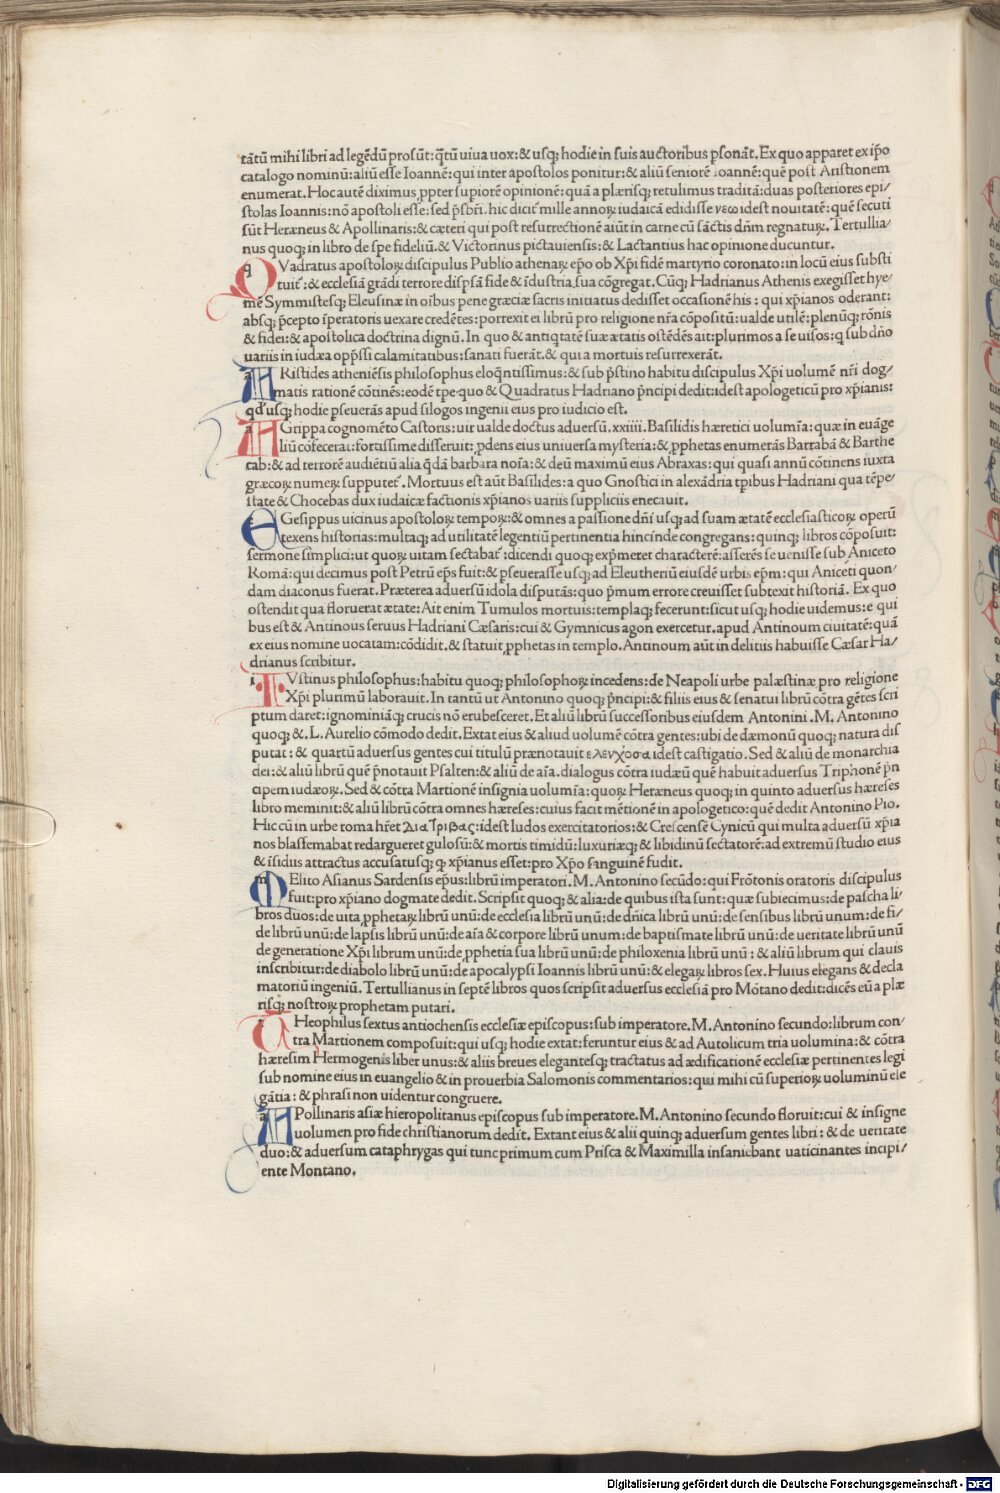 tãtũ mihi libri ad legẽdũ prosũt: q̃tũ uiua uox: & usq; hodie in suis auctoribus psonãt. Ex quo apparet ex ip̃o
catalogo nominũ: aliũ esse Ioannẽ: qui inter apostolos ponitur: & aliũ seniorẽ Ioannẽ: quẽ post Aristionem
enumerat. Hoc autẽ diximus ꝓpter supiorẽ opinionẽ: quã a plærisq; retulimus traditã: duas posteriores epi/
stolas Ioannis: nõ apostoli esse: sed p̃sbr̃i. hic dicit᷑ mille annoꝝ iudaicã edidisse νεω idest nouitatẽ: quẽ secuti
sũt Heræneus & Apollinaris: & cæteri qui post resurrectionẽ aiũt in carne cũ sãctis dñm regnatuꝝ. Tertullia/
nus quoq; in libro de spe fideliũ. & Victorinus pictauiensis: & Lactantius hac opinione ducuntur.
q QVadratus apostoloꝝ discipulus Publio athenaꝝ ep̃o ob Xp̃i fidẽ martyrio coronato: in locũ eius substi
tuit᷑: & ecclesiã grãdi terrore dispsã fide & ĩdustria sua cõgregat. Cũq; Hadrianus Athenis exegisset hye/
mẽ Symmistesq; Eleusinæ in oĩbus pene græciæ sacris initiatus dedisset occasionẽ his: qui xp̃ianos oderant:
absq; p̃cepto ĩperatoris uexare credẽtes: porrexit ei librũ pro religione nr̃a cõpositũ: ualde utilẽ: plenũq; rõnis
& fidei: & apostolica doctrina dignũ. In quo & antiqtatẽ suæ ætatis ostẽdẽs ait: plurimos a se uisos: q sub dño
uariis in iudæa opp̃ssi calamitatibus: sanati fuerãt. & qui a mortuis resurrexerãt.
a ARistides atheniẽsis philosophus eloq̃ntissimus: & sub p̃stino habitu discipulus Xp̃i uolumẽ nr̃i dog/
matis rationẽ cõtinẽs: eodẽ tpe quo & Quadratus Hadriano p̃ncipi dedit: idest apologeticũ pro xp̃ianis:
qd᷑ usq; hodie pseuerãs apud silogos ingenii eius pro iudicio est.
a AGrippa cognomẽto Castoris: uir ualde doctus aduersũ. xxiiii. Basilidis hæretici uolumĩa: quæ in euãge
liũ cõfecerat: fortissime disseruit: ꝓdens eius uniuersa mysteria: & ꝓphetas enumerãs Barrabã & Barthe
cab: & ad terrorẽ audiẽtiũ alia q̃dã barbara noĩa: & deũ maximũ eius Abraxas: qui quasi annũ cõtinens iuxta
græcoꝝ numeꝝ supputet᷑. Mortuus est aũt Basilides: a quo Gnostici in alexãdria tpibus Hadriani qua tẽpe/
state & Chocebas dux iudaicæ factionis xp̃ianos uariis suppliciis enecauit.
e EGesippus uicinus apostoloꝝ tempoꝝ: & omnes a passione dñi usq; ad suam ætatẽ ecclesiasticoꝝ operũ
texens historias: multaq; ad utilitatẽ legentiũ pertinentia hincinde congregans: quinq; libros cõposuit:
sermone simplici: ut quoꝝ uitam sectabat᷑: dicendi quoq; exp̃meret characterẽ: asserẽs se uenisse sub Aniceto
Romã: qui decimus post Petrũ ep̃s fuit: & pseuerasse usq; ad Eleutheriũ eiusdẽ urbis ep̃m: qui Aniceti quon/
dam diaconus fuerat. Præterea aduersũ idola disputãs: quo p̃mum errore creuisset subtexit historiã. Ex quo
ostendit qua floruerat ætate: Ait enim Tumulos mortuis: templaq; fecerunt: sicut usq; hodie uidemus: e qui
bus est & Antinous seruus Hadriani Cæsaris: cui & Gymnicus agon exercetur. apud Antinoum ciuitatẽ: quã
ex eius nomine uocatam: cõdidit. & statuit ꝓphetas in templo. Antinoum aũt in delitiis habuisse Cæsar Ha/
drianus scribitur.
i IVstinus philosophus: habitu quoq; philosophoꝝ incedens: de Neapoli urbe palæstinæ pro religione
Xp̃i plurimũ laborauit. In tantũ ut Antonino quoq; p̃ncipi: & filiis eius & senatui librũ cõtra gẽtes scri
ptum daret: ignominiãq; crucis nõ erubesceret. Et aliũ librũ successoribus eiusdem Antonini. M. Antonino
quoq; &. L. Aurelio cõmodo dedit. Extat eius & aliud uolumẽ cõtra gentes: ubi de dæmonũ quoq; natura dis
putat: & quartũ aduersus gentes cui titulũ prænotauit ελενχοσα idest castigatio. Sed & aliũ de monarchia
dei: & aliũ librũ quẽ p̃notauit Psalten: & aliũ de aĩa. dialogus cõtra iudæũ quẽ habuit aduersus Triphonẽ p̃n
cipem iudæoꝝ. Sed & cõtra Martionẽ insignia uolumĩa: quoꝝ Heræneus quoq; in quinto aduersus hæreses
libro meminit: & aliũ librũ cõtra omnes hæreses: cuius facit mẽtionẽ in apologetico: quẽ dedit Antonino Pio.
Hic cũ in urbe roma hr̃et Διατριβας: idest ludos exercitatorios: & Crescensẽ Cynicũ qui multa aduersũ xp̃ia
nos blasfemabat redargueret gulosũ: & mortis timidũ: luxuriæq; & libidinũ sectatorẽ: ad extremũ studio eius
& ĩsidiis attractus accusatusq; ꝙ xp̃ianus esset: pro Xp̃o sanguinẽ fudit.
m MElito Asianus Sardensis ep̃us: librũ imperatori. M. Antonino secũdo: qui Frõtonis oratoris discipulus
fuit: pro xp̃iano dogmate dedit. Scripsit quoq; & alia: de quibus ista sunt: quæ subiecimus: de pascha li/
bros duos: de uita ꝓphetaꝝ librũ unũ: de ecclesia librũ unũ: de dñica librũ unũ: de sensibus librũ unum: de fi/
de librũ unũ: de lapsis librũ unũ: de aĩa & corpore librũ unum: de baptismate librũ unũ: de ueritate librũ unũ
de generatione Xp̃i librum unũ: de ꝓphetia sua librũ unũ: de philoxenia librũ unũ: & aliũ librum qui clauis
inscribitur: de diabolo librũ unũ: de apocalypsi Ioannis librũ unũ: & elegaꝝ libros sex. Huius elegans & decla
matoriũ ingeniũ. Tertullianus in septẽ libros quos scripsit aduersus ecclesiã pro Mõtano dedit: dicẽs eũ a plæ
risq; nostroꝝ prophetam putari.
t THeophilus sextus antiochensis ecclesiæ episcopus: sub imperatore. M. Antonino secundo: librum con/
tra Martionem composuit: qui usq; hodie extat: feruntur eius & ad Autolicum tria uolumina: & cõtra
hæresim Hermogenis liber unus: & aliis breues elegantesq; tractatus ad ædificationẽ ecclesiæ pertinentes legi
sub nomine eius in euangelio & in prouerbia Salomonis commentarios: qui mihi cũ superioꝝ uoluminũ ele
gãtia: & phrasi non uidentur congruere.
a APollinaris asiæ hieropolitanus episcopus sub imperatore. M. Antonino secundo floruit: cui & insigne
uolumen pro fide christianorum dedit. Extant eius & alii quinq; aduersum gentes libri: & de ueritate
duo: & aduersum cataphrygas qui tunc primum cum Prisca & Maximilla insaniebant uaticinantes incipi/
ente Montano.
Digitalisierung gefördert durch die Deutsche Forschungsgemeinschaft - DFG